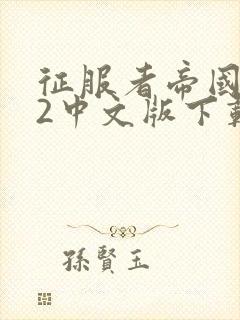 征服者帝國
2中文版下載
孫賢玉